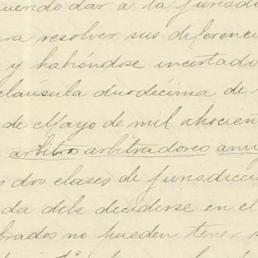 uerido dar a la jurisdic
ra resolver sus diferenci
y habiéndose insertado
clausula duodécima de
de Mayo de mil ochocien
arbitros arbitradores ami
s dos clases de jurisdicci
da debe decidirse en el
brados no pueden tener